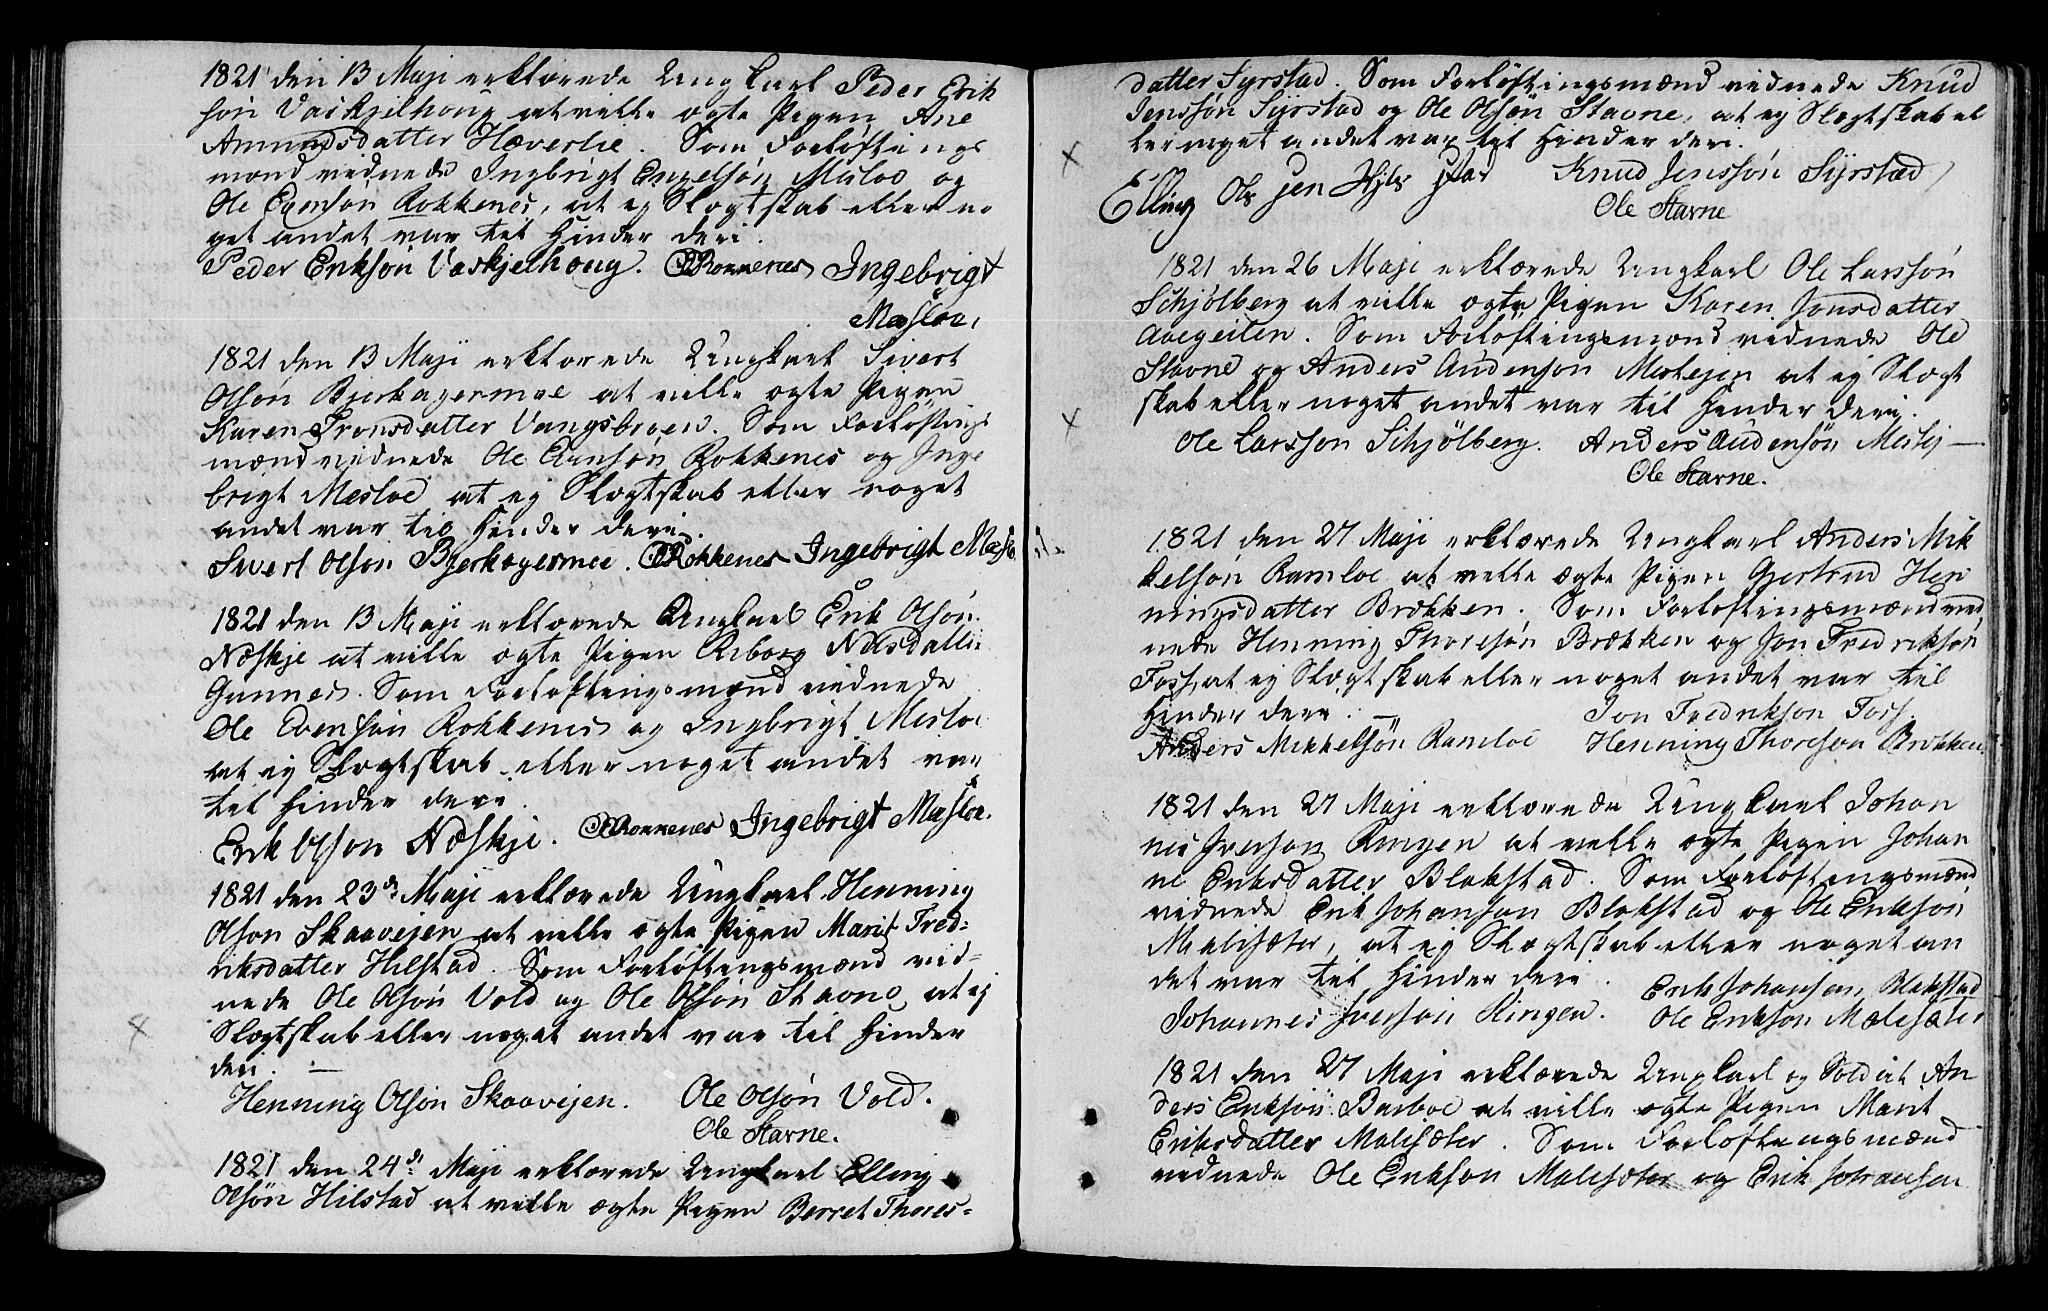 1821 den 13 Maji erklærede Ungkarl Peder Erik
søn Vaskjelhoug at ville ægte Pigen Ane
Amundsdatter Hæverlie. Som Forløftings
mænd vidnede Ingbrigt Engelsøn Mesloe og
Ole Evensøn Rokkenes, at ej Slægtskab eller no
get andet var til Hinder deri.
Peder Eriksøn Vaskjelhoug. Rokkenes Ingebrigt
Mesloe,
1821 den 13 Maji erklærede Ungkarl Sivert
Olsøn Bjerkagermoe at ville ægte Pigen
Karen Tronsdatter Vangsbroen. Som Forløftings
mænd vidnede Ole Evensøn Rokkenes og Inge
brigt Mesloe at ej Slægtskab eller noget
andet var til Hinder deri.
Sivert Olson Bjerkagermoe. Rokkenes Ingebrigt Meslo
1821 den 13 Maji erklærede Ungkarl Erik Olsøn
Næskje at ville ægte Pigen Riborg Nilsdatter
Gunnes. Som Forløftingsmænd vidnede
Ole Evensøn Rokkenes og Ingbrigt Mesloe
at ej Slægtskab eller noget andet var
til Hinder deri.
Erik Olson Næskje. Rokkenes Ingebrigt Mesloe.
1821 den 23de Maji erklærede Ungkarl Henning
Olson Skaavejen at ville ægte Pigen Marit Fred-
riksdatter Hilstad. Som Forløftingsmænd vid-
nede Ole Olsøn Vold og Ole Olsøn Stavne, at ej
Slægtskab eller noget andet var til Hinder
deri. —
Henning Olsøn Skaavejen. Ole Olsøn Vold.
Ole Stavne.
1821 den 24de Maji erklærede Ungkarl Elling
Olsøn Hilstad at ville ægte Pigen Berret Thores-
datter Syrstad. Som Forløftingsmænd vidnede Knud
Jensson Syrstad og Ole Olsøn Stavne, at ej Slægtskab el
ler noget andet var til Hinder deri.
Elling Ols sen Hjls stad Knud Jenssøn Syrstad
Ole Stavne
1821 den 26 Maji erklærede Ungkarl Ole Larssøn
Schjølberg at ville ægte Pigen Karen Jonsdatter
Aaegeiten. Som Forløftingsmænd vidnede Ole
Stavne og Anders Audenson Merkejen at ej Slægt
skab eller noget andet var til Hinder deri.
Ole Larsson Schjølberg. Anders Audensøn
Ole Stavne.
1821 den 27 Maji erklærede Ungkarl Anders Mik
kelsøn Ramloe at ville ægte Pigen Gjertrud Hen
ningsdatter Brækken. Som Forløftingsmænd vid
nede Henning Thoresøn Brækken og Jon Fredrikson
Foss, at ej Slægtskab eller noget andet var til
Hinder deri. — Jon Fredrikson Foss
Anders Mikkelsøn Ramloe Henning Thoreson Brækken
1821 den 27 Maji erklærede Ungkarl Johan
nes Iverson Ringen at ville ægte Pigen Johan
ne Eriksdatter Blokstad. Som Forløftingsmænd
vidnede Erik Johanson Blokstad og Ole Erikson
Malisæter, at ej Slægtskab eller noget an
det var til Hinder deri. Erik Johanson Blokstad
Johannes Iverson Ringen. Ole Erikson Malisæter
1821 den 27 Maji erklærede Ungkarl og Soldat An
ders Eriksøn Barboe at ville ægte Pigen Marit
Eriksdatter Malisæter. Som Forløftingsmænd
vidnede Ole Erikson Malisæter og Erik Johansen